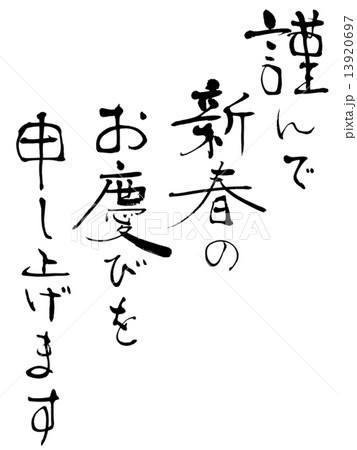 謹んで
新春の
お慶びを
申し上げます
PIXTA
pixta.jp - 13920697